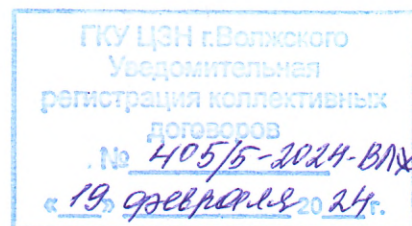 ГКУ ЦЗН г.Волжского
Уведомительная
регистрация коллективных
договоров
№ 405/5-2024-ВЛЖ
«19» февраля 2024г.